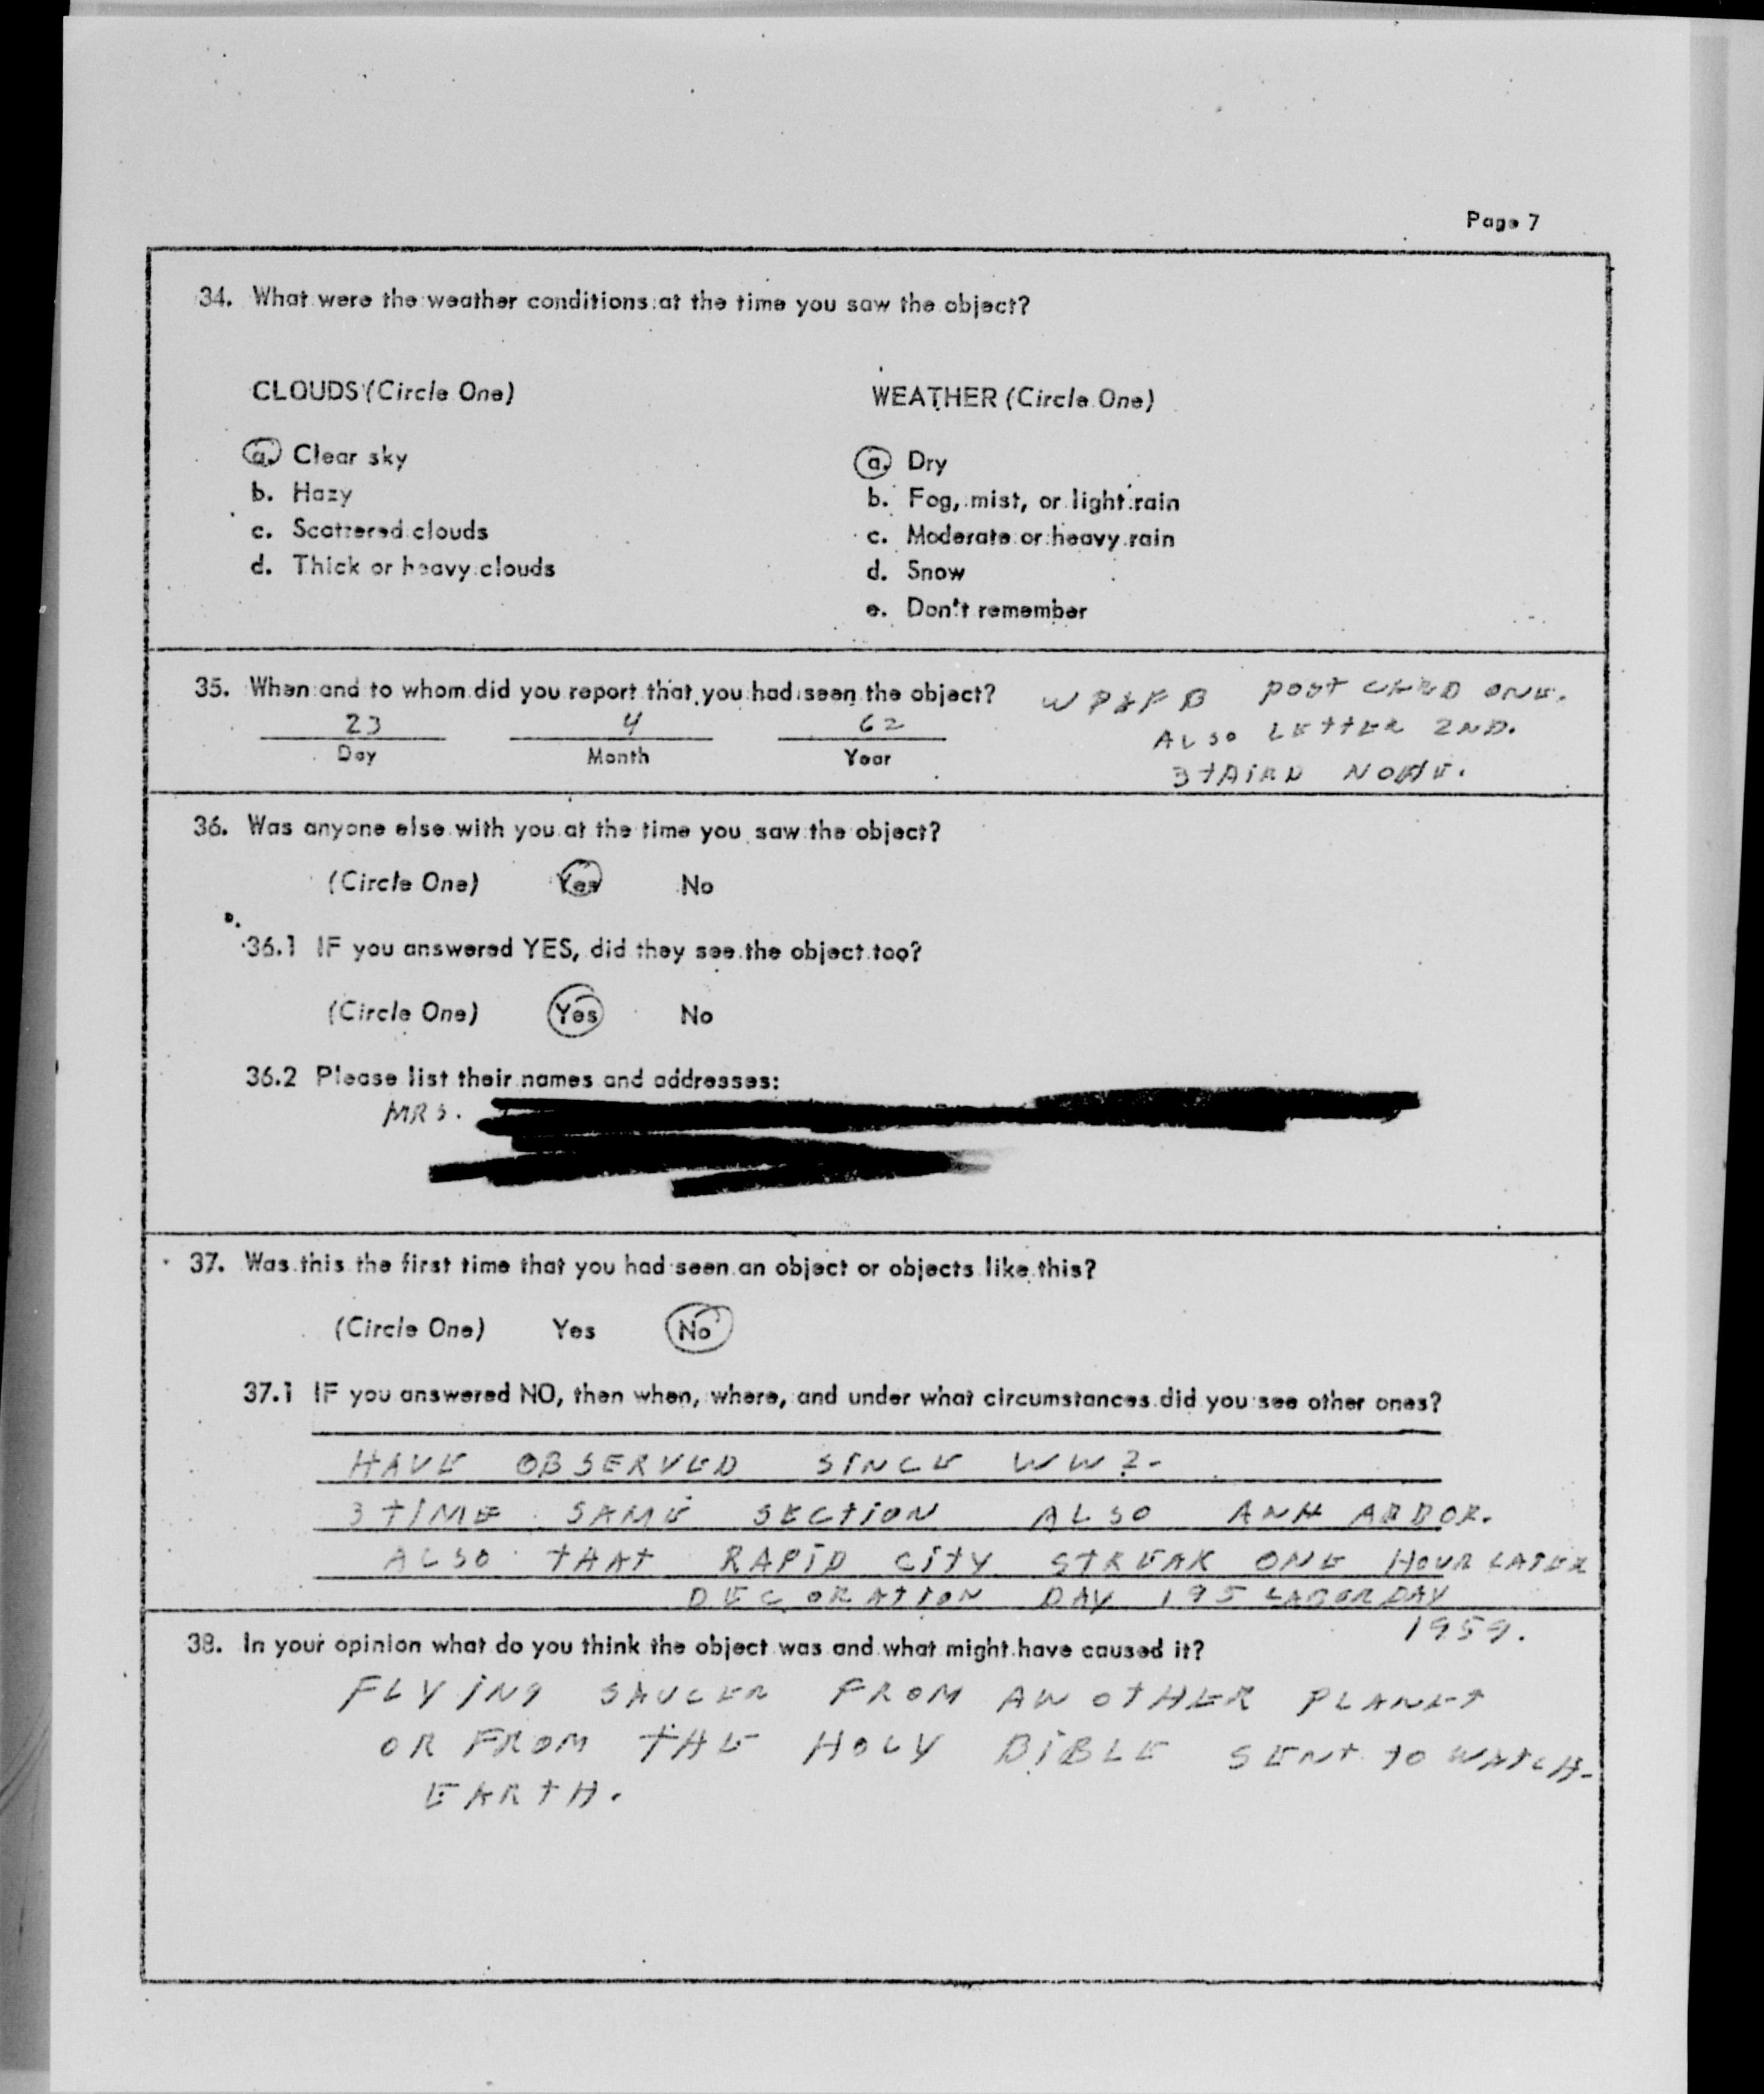 Page 7
34. What were the weather conditions at the time you saw the object?
CLOUDS (Circle One)
WEATHER (Circle One)
a. Clear sky
b. Hazy
c. Scattered clouds
d. Thick or heavy clouds
a. Dry
b. Fog, mist, or light rain
c. Moderate or heavy rain
d. Snow
e. Don't remember
35. When and to whom did you report that you had seen the object?
WPAFB POST CARD ONE.
ALSO LETTER 2ND.
23 4 62
Day Month Year
36. Was anyone else with you at the time you saw the object?
(Circle One) Yes No
36.1 IF you answered YES, did they see the object too?
(Circle One) Yes No
36.2 Please list their names and addresses:
MRS.
37. Was this the first time that you had seen an object or objects like this?
(Circle One) Yes No
37.1 IF you answered NO, then when, where, and under what circumstances did you see other ones?
HAVE OBSERVED SINCE WW2-
3 TIME SAME SECTION ALSO ANH ARBOR.
ALSO THAT RAPID CITY STREAK ONE HOUR LATER
DECORATION DAY 195 LABOR DAY
1959.
38. In your opinion what do you think the object was and what might have caused it?
FLYING SAUCER FROM ANOTHER PLANET
OR FROM THE HOLY BIBLE SENT TO WATCH-
EARTH.